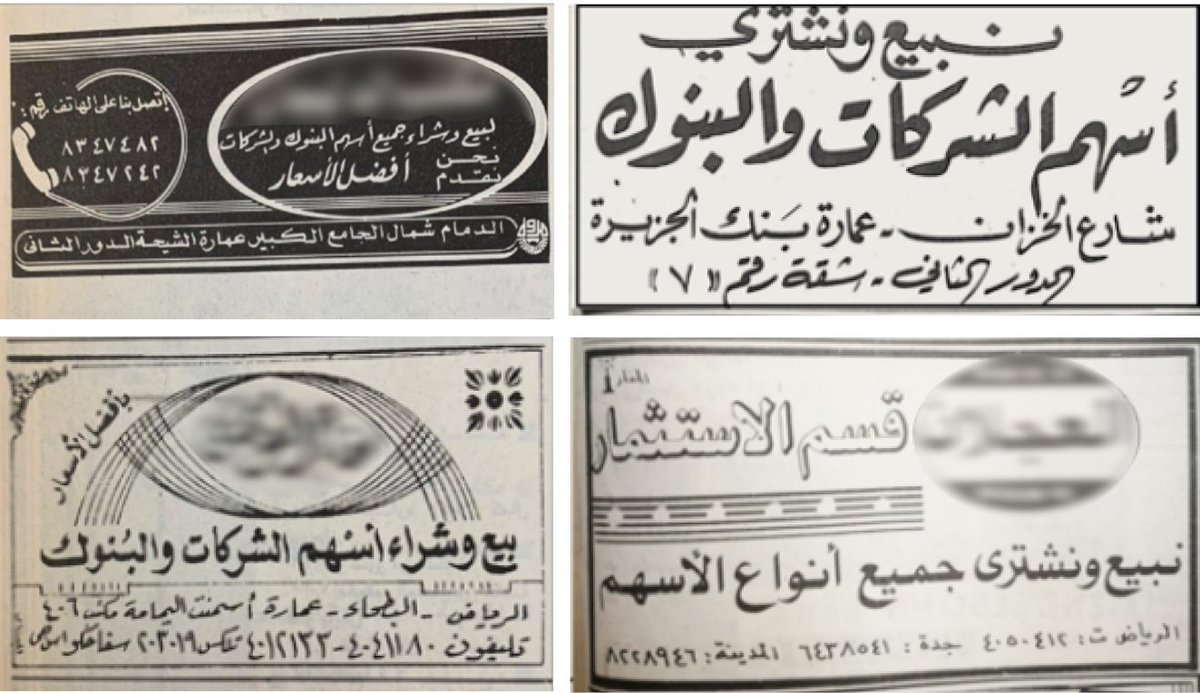 إتصل بنا على الهاتف رقم:
٨٣٤٧٤٨٢
٨٣٤٧٢٤٢
لبيع وشراء جميع أسهم البنوك والشركات
نحن نقدم أفضل الأسعار
الدمام شمال الجامع الكبير عمارة الشيحة الدور الثاني
نبيع ونشتري
أسهم الشركات والبنوك
شارع الخزان - عمارة بنك الجزيرة
الدور الثاني - شقة رقم (٧)
بأفضل الأسعار
بيع وشراء أسهم الشركات والبنوك
الرياض - البطحاء - عمارة أسمنت اليمامة مكتب ٤٠٦
تليفون ٤٠٤١١٨٠ - ٤٠١٢١٣٣ تلكس ٢٠٣٠١٩
قسم الاستثمار
نبيع ونشترى جميع أنواع الأسهم
الرياض ت: ٤٠٥٠٤١٢ جدة: ٦٤٣٨٥٤١ المدينة: ٨٢٢٨٩٤٦